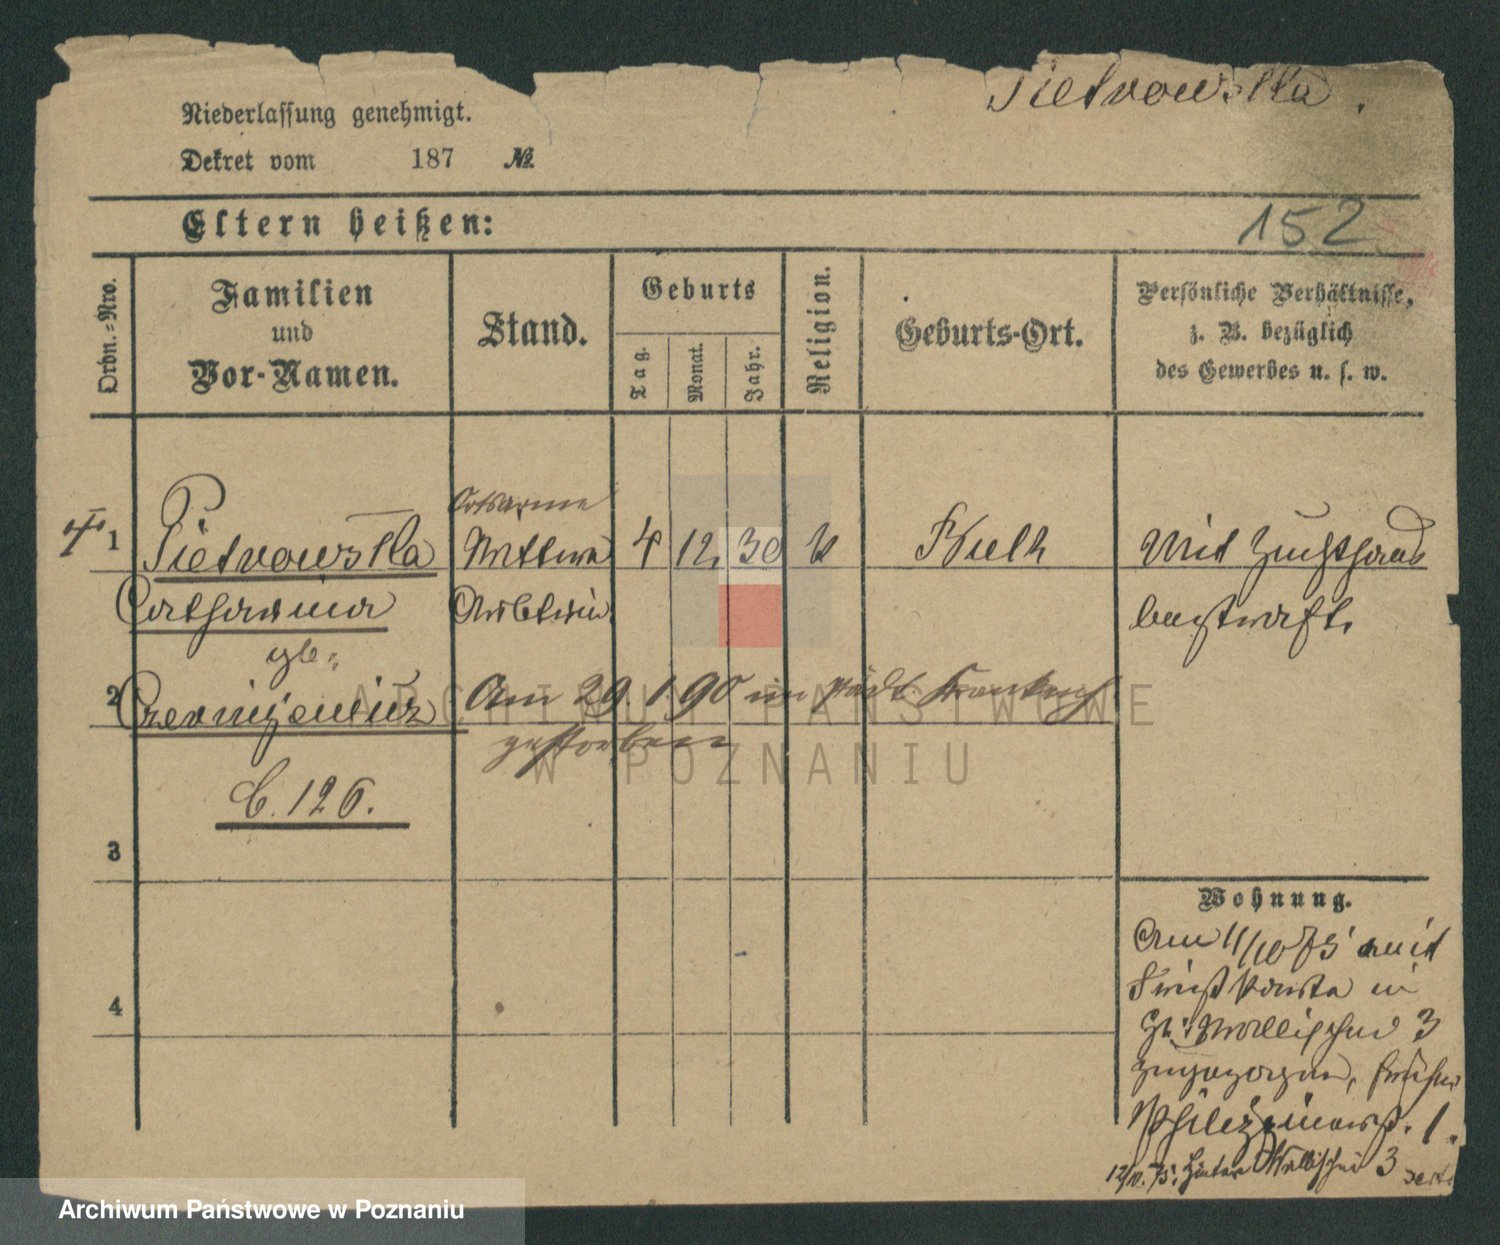 Pietrowska.
Niederlassung genehmigt.
Dekret vom 187 №
Eltern heißen:
152
Ordn.-Nro.
Familien
und
Vor-Namen.
Stand.
Geburts
Tag.
Monat.
Jahr.
Religion.
Geburts-Ort.
Persönliche Verhältnisse,
z. B. bezüglich
des Gewerbes u. s. w.
Ortsarme
1 Pietrowska Wittwe 4 12. 30 k Mit Zuchthaus
Catharina Arbeiterin bestraft.
geb.
2 Am 29. 1. 90 im städt. Krankenh.
gestorben
C. 126.
3
4
Wohnung.
Am 11/10 75 mit
in
3
zugezogen, früher
1.
12/11. 75. Hinter Wallischei 3
ARCHIWUM PAŃSTWOWE
W POZNANIU
Archiwum Państwowe w Poznaniu